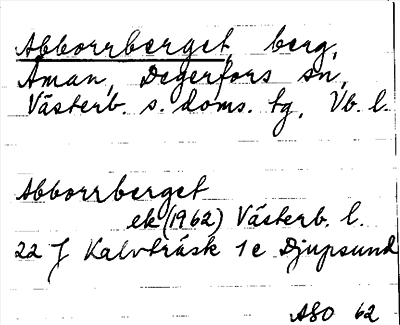 Abborrberget, berg,
Åman, Degerfors sn,
Västerb. s. doms. tg, Vb. l.
Abborrberget
ek (1962) Västerb. l.
22 J Kalvträsk 1 e Djupsund
ASO 62